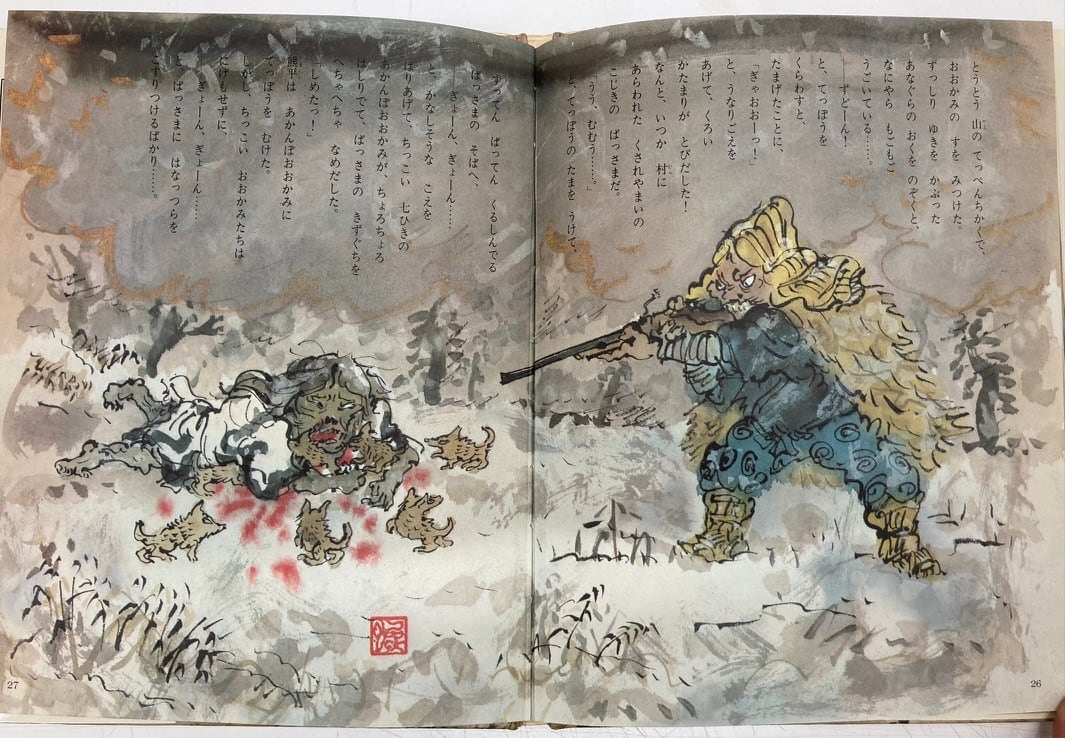 とうとう 山の てっぺんちかくで、
おおかみの すを みつけた。
ずっしり ゆきを かぶった
あなぐらの おくを のぞくと、
なにやら もごもご
うごいている……。
――ずどーん！
と、てっぽうを
くらわすと、
たまげたことに、
「ぎゃおおーっ！」
と、うなりごえを
あげて、くろい
かたまりが とびだした！
なんと、いつか 村に
あらわれた くされやまいの
こじきの ばっさまだ。
「うう、むむう……。」
と、てっぽうの たまを うけて、
26
ずってん ばってん くるしんでる
ばっさまの そばへ、
――ぎょーん、ぎょーん……
と、かなしそうな こえを
はりあげて、ちっこい 七ひきの
あかんぼおおかみが、ちょろちょろ
はしりでて、ばっさまの きずぐちを
ぺちゃぺちゃ なめだした。
「しめたっ！」
熊平は あかんぼおおかみに
てっぽうを むけた。
しかし、ちっこい おおかみたちは
にげもせずに、
――ぎょーん、ぎょーん……
と、ばっさまに はなっつらを
こすりつけるばかり……。
27